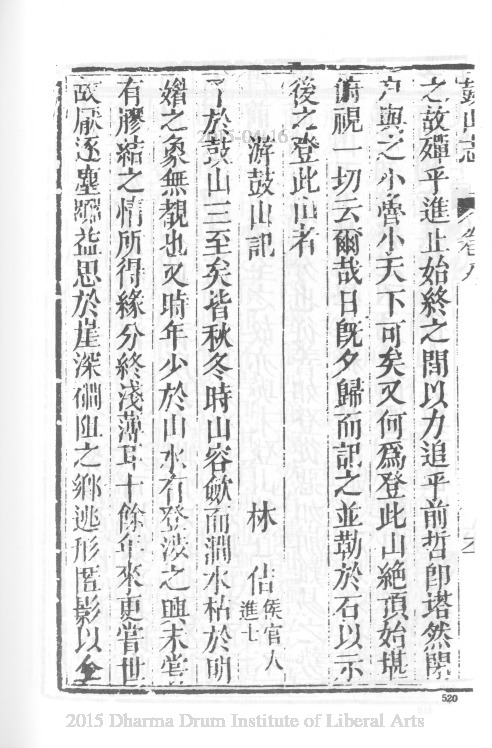 鼓山志 卷八
之故殫乎進止始終之間以力追乎前哲即塔然閉
戶與之小魯小天下可矣又何為登此山絕頂始堪
俯視一切云爾哉日既夕歸而記之並勒於石以示
後之登此山者
游鼓山記 林佶侯官人進士
予於鼓山三至矣皆秋冬時山容斂而澗水枯於明
媚之象無覩也又時年少於山水有登涉之興未嘗
有膠結之情所得緣分終淺薄耳十餘年來更嘗世
故厭逐塵囂益思於崖深磵阻之鄉逃形匿影以全
520
2015 Dharma Drum Institute of Liberal Arts